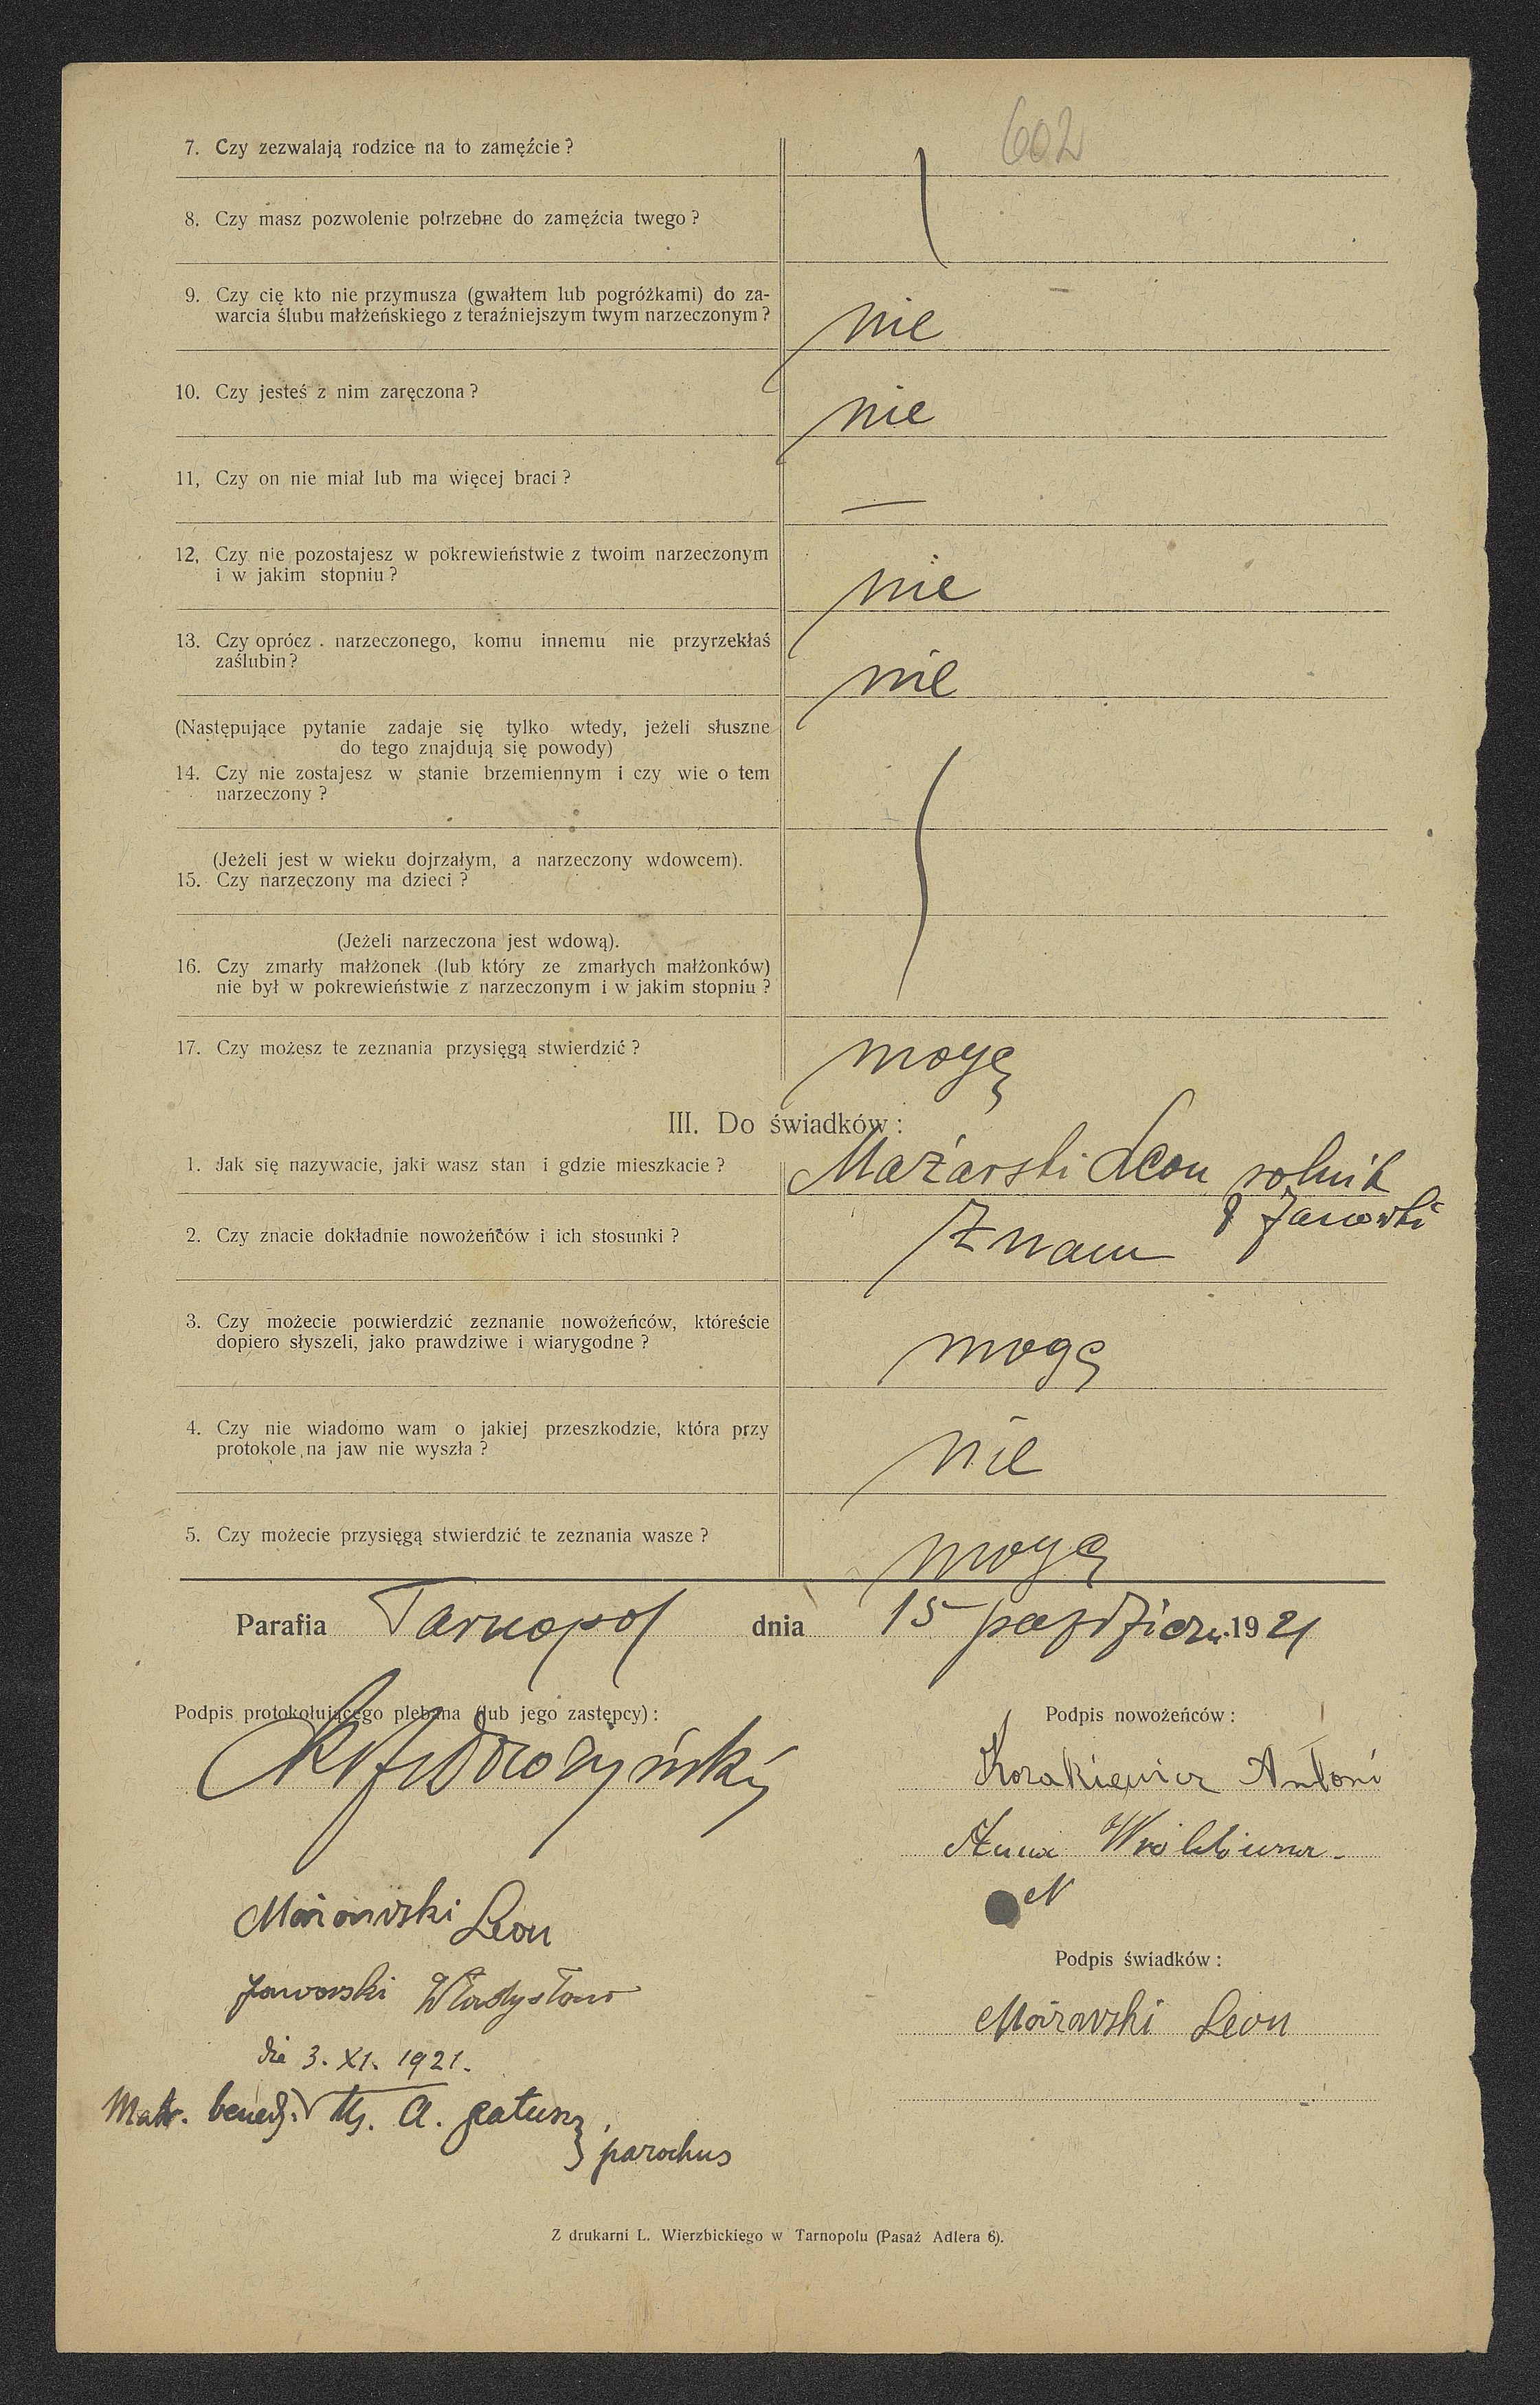 602
7. Czy zezwalają rodzice na to zamęźcie ?
8. Czy masz pozwolenie potrzebne do zamęźcia twego ?
9. Czy cię kto nie przymusza (gwałtem lub pogróżkami) do za-
warcia ślubu małżeńskiego z teraźniejszym twym narzeczonym ?
nie
10. Czy jesteś z nim zaręczona ?
nie
11, Czy on nie miał lub ma więcej braci ?
—
12, Czy nie pozostajesz w pokrewieństwie z twoim narzeczonym
i w jakim stopniu ?
nie
13. Czy oprócz . narzeczonego, komu innemu nie przyrzekłaś
zaślubin ?
nie
(Następujące pytanie zadaje się tylko wtedy, jeżeli słuszne
do tego znajdują się powody)
14. Czy nie zostajesz w stanie brzemiennym i czy wie o tem
narzeczony ?
(Jeżeli jest w wieku dojrzałym, a narzeczony wdowcem).
15. Czy narzeczony ma dzieci ?
(Jeżeli narzeczona jest wdową).
16. Czy zmarły małżonek (lub który ze zmarłych małżonków)
nie był w pokrewieństwie z narzeczonym i w jakim stopniu ?
17. Czy możesz te zeznania przysięgą stwierdzić ?
mogę
III. Do świadków :
1. Jak się nazywacie, jaki wasz stan i gdzie mieszkacie ?
Mażarski Leon rolnik
2. Czy znacie dokładnie nowożeńców i ich stosunki ?
Znam
3. Czy możecie potwierdzić zeznanie nowożeńców, któreście
dopiero słyszeli, jako prawdziwe i wiarygodne ?
mogę
4. Czy nie wiadomo wam o jakiej przeszkodzie, która przy
protokole na jaw nie wyszła ?
nie
5. Czy możecie przysięgą stwierdzić te zeznania wasze ?
mogę
Parafia Tarnopol dnia 15 paździer. 1921
Podpis protokołującego plebana (lub jego zastępcy) :
Podpis nowożeńców :
Kozakiewicz Antoni
Anna
Leon
Jaworski Władysław
Podpis świadków :
Leon
die 3. XI. 1921.
Matr. bened. A.
parochus
Z drukarni L. Wierzbickiego w Tarnopolu (Pasaż Adlera 6).